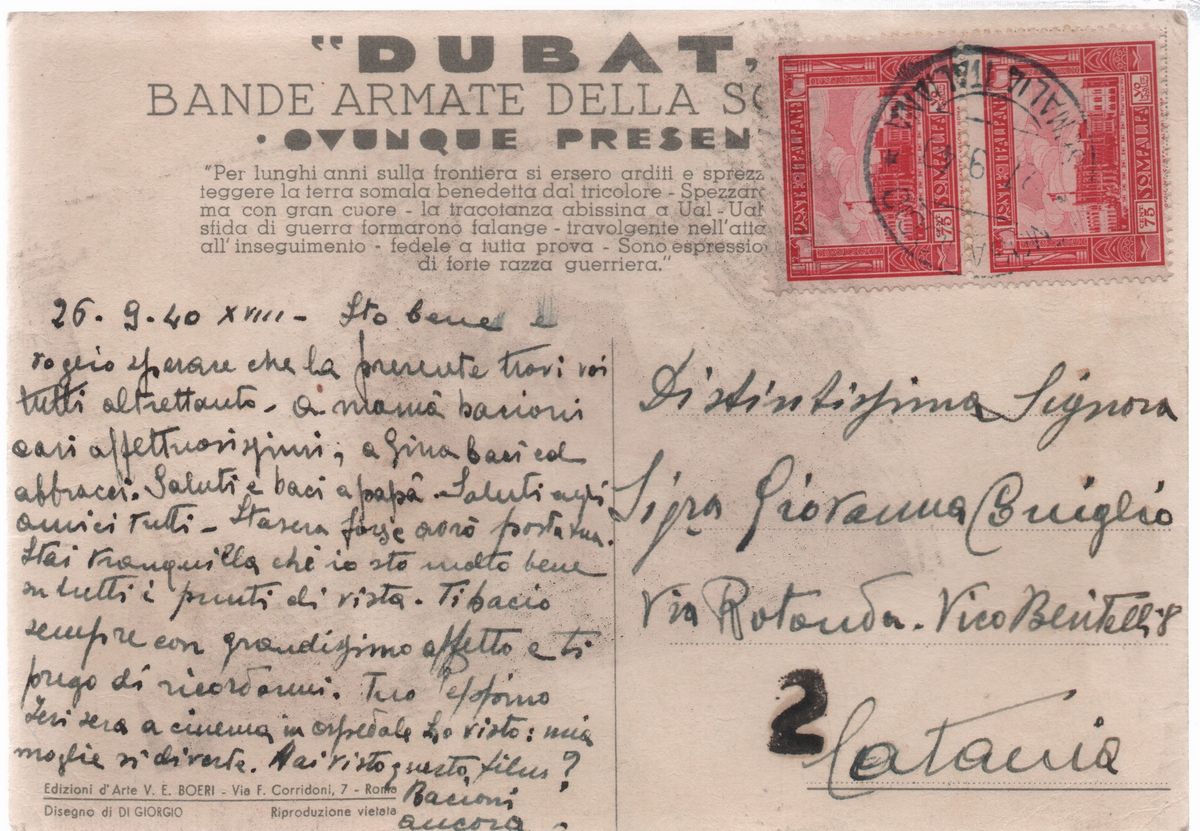 "DUBAT,
BANDE ARMATE DELLA SO
• OVUNQUE PRESEN
"Per lunghi anni sulla frontiera si ersero arditi e sprezz
teggere la terra somala benedetta dal tricolore - Spezzaro
ma con gran cuore - la tracotanza abissina a Ual - Ual
sfida di guerra formarono falange - travolgente nell'atta
all'inseguimento - fedele a tutta prova - Sono espressio
di forte razza guerriera."
POSTE ITALIANE
SOMALIA
75
POSTE ITALIANE
SOMALIA
75
SOMALIA ITALIANA
26 - 9 - 40 XVIII - Sto bene e
voglio sperare che la presente trovi voi
tutti altrettanto - a mamà bacioni
cari affettuosissimi, a Gina baci ed
abbracci. Saluti e baci a papà. Saluti agli
amici tutti - Stasera forse avrò posta tua.
Stai tranquilla chè io sto molto bene
su tutti i punti di vista. Ti bacio
sempre con grandissimo affetto e ti
prego di ricordarmi. Tuo Peppino
Ieri sera a cinema in ospedale ho visto: mia
moglie si diverte. Hai visto questo film?
Bacioni
ancora -
Distintissima Signora
Sig.ra Giovanna
Via Rotonda - Vico Benitelli 8
2
Catania
Edizioni d'Arte V. E. BOERI - Via F. Corridoni, 7 - Roma
Disegno di DI GIORGIO Riproduzione vietata